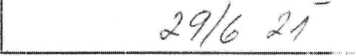 29/6 21